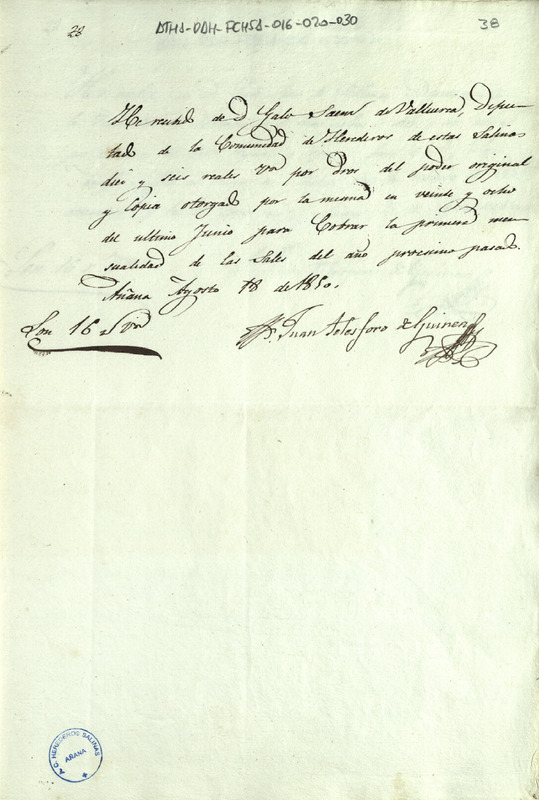 28 ATHA-DAH-FCHSA-016-020-030 38
He recibido de D. Galo Saenz de Valluerca, Diputado
tado de la Comunidad de Herederos de estas Salinas
diez y seis reales Vn por dros del poder original
y Copia otorgado por la misma en veinte y ocho
del ultimo Junio para Cobrar la primera men
sualidad de las Sales del año procsimo pasado.
Añana Agosto 18 de 1850.
Son 16 rs Vn
Juan Telesforo de Guinea
A.C. HEREDEROS SALINAS
AÑANA